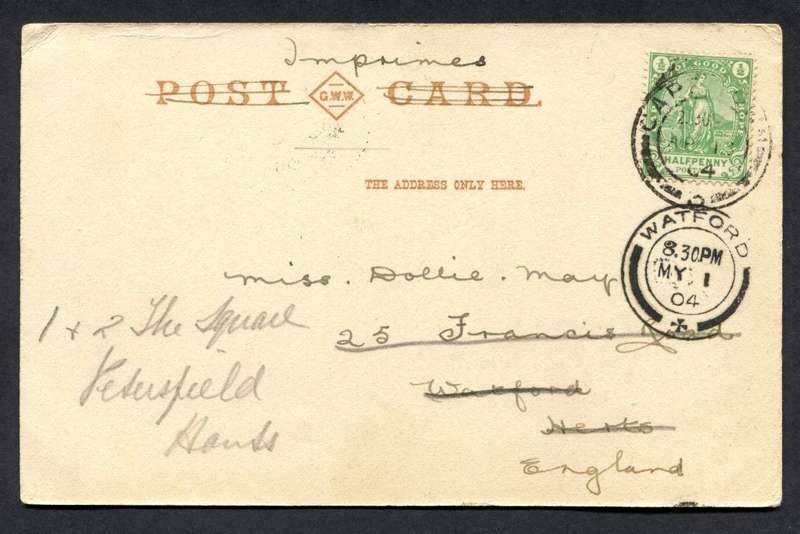 Imprimes
POST G.W.W. CARD.
OF GOOD
½ ½
HALFPENNY
04
THE ADDRESS ONLY HERE.
WATFORD
8.30PM
MY 1
04
Miss. Dollie. May
25 Francis Road
Watford
Herts
England
1 + 2 The Square
Petersfield
Hants